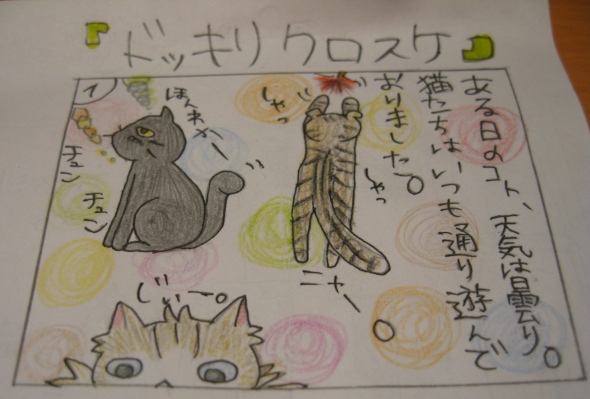 『ドッキリクロスケ』
ある日のコト、天気は曇り。
猫たちはいつも通り遊んで
おりました。
1
ほんわかー
チュン
チュン
しゃっ
しゃっ
ニャー
じぃー。